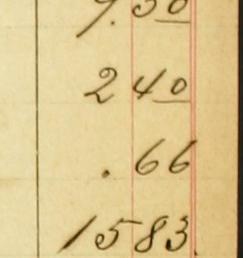 9.50
2 40
.66
1583